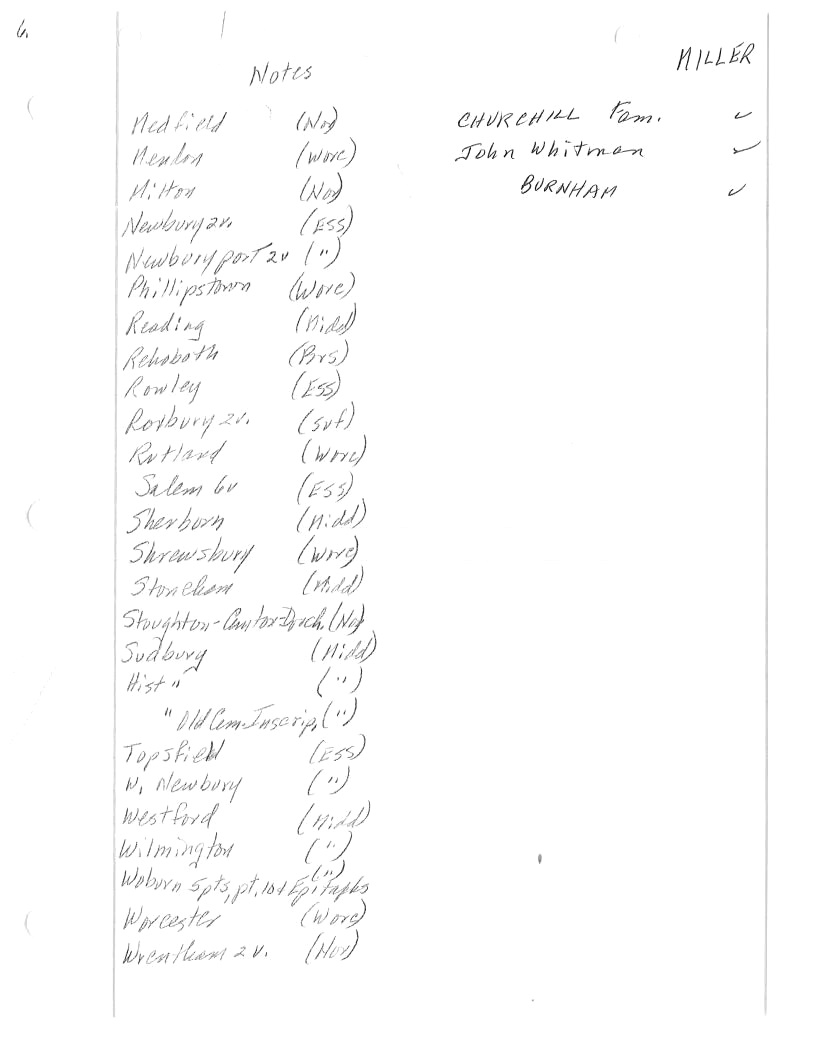 6.
MILLER
Notes
Medfield (Nor)
Mendon (Worc)
Milton (Nor)
Newbury 2v. (Ess)
Newburyport 2v (")
Phillipstown (Worc)
Reading (Midd)
Rehoboth (Brs)
Rowley (Ess)
Roxbury 2v. (Suf)
Rutland (Worc)
Salem 6v (Ess)
Sherborn (Midd)
Shrewsbury (Worc)
Stoneham (Midd)
Stoughton-Canton-Dorch. (Nor)
Sudbury (Midd)
Hist " (")
" Old Cem. Inscrip. (")
Topsfield (Ess)
W. Newbury (")
Westford (Midd)
Wilmington (")
Woburn 5pts, pt. 10+ Epitaphs (")
Worcester (Worc)
Wrentham 2 v. (Nor)
CHURCHILL Fam. ✓
John Whitman ✓
BURNHAM ✓